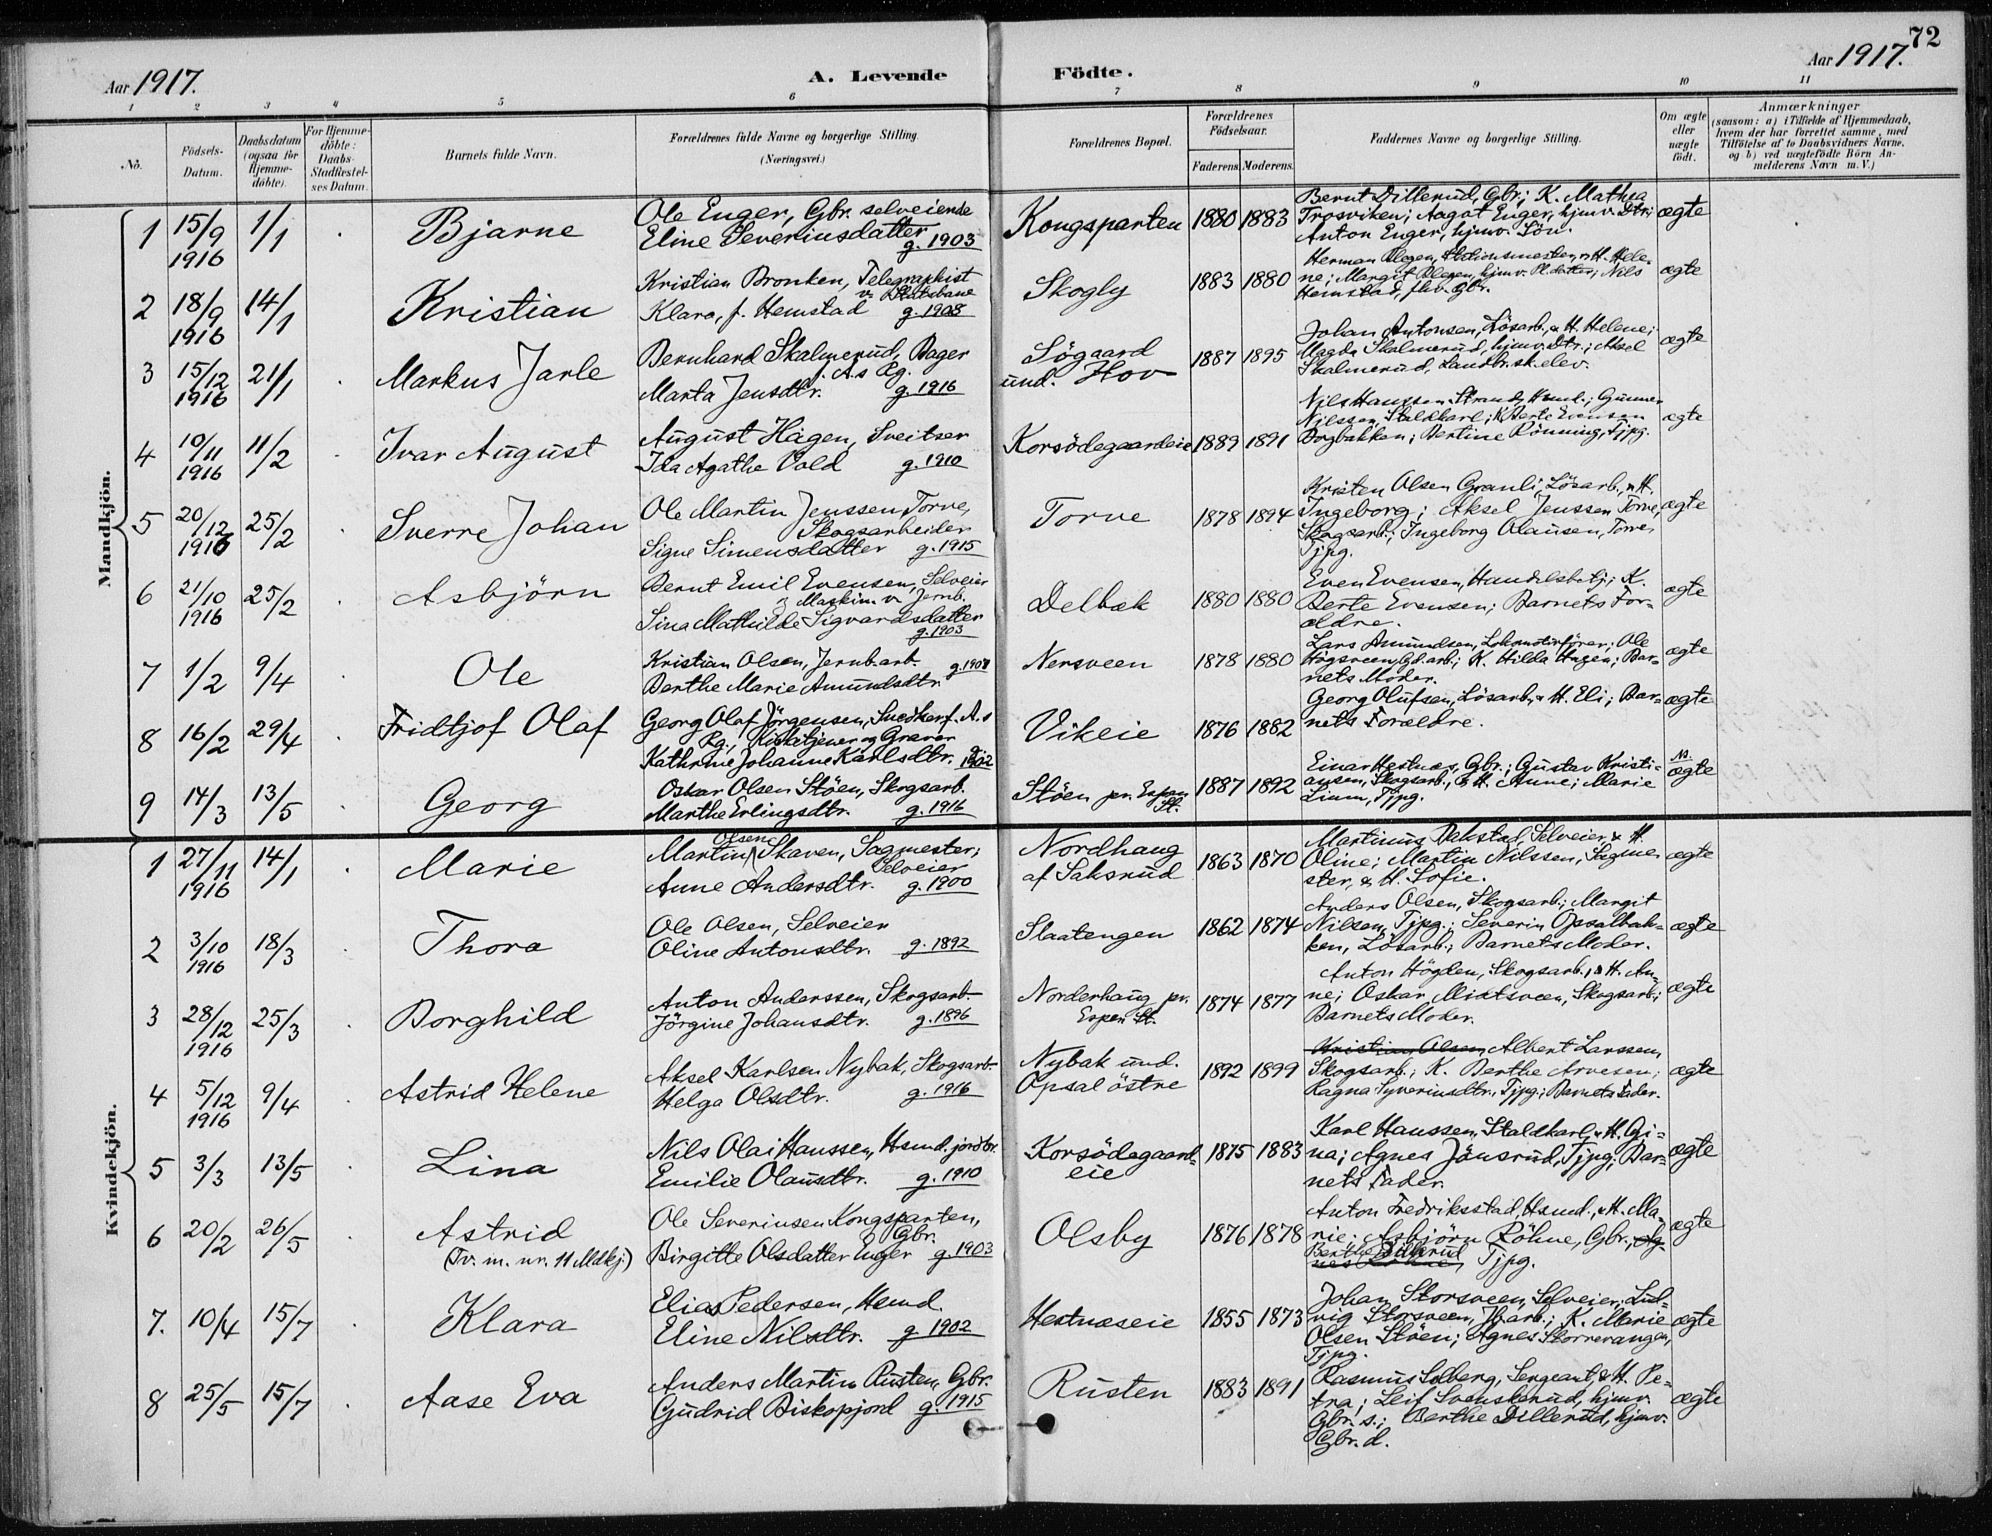 72
Aar 1917.
A. Levende Födte.
Aar 1917.
1 2 3 4 5 6 7 8 9 10 11
No.
Födsels-
Datum.
Daabsdatum
(ogsaa for
Hjemme-
döbte).
For Hjemme-
döbte:
Daabs-
Stadfæstel-
ses Datum.
Barnets fulde Navn.
Forældrenes fulde Navne og borgerlige Stilling.
(Næringsvei.)
Forældrenes Bopæl.
Forældrenes
Födselsaar.
Faderens. Moderens.
Faddernes Navne og borgerlige Stilling.
Om ægte
eller
uægte
födt.
Anmærkninger
(saasom: a) i Tilfælde af Hjemmedaab,
hvem der har forrettet samme, med
Tilföielse af to Daabsvidners Navne,
og b) ved uægtefödte Börn An-
melderens Navn m. V.)
Mandkjön.
1 15/9 1916 1/1 Bjarne
Ole Enger, Gbr. selveiende
Eline Severinsdatter g. 1903
Kongsparten 1880 1883
Bernt Dillerud, Gbr.; K. Mathea
Trosviken; Aagot Enger, hjmv. Dtr;
Anton Enger, hjmv. Sön.
ægte
2 18/9 1916 14/1 Kristian
Kristian Bronken, Telegraphist
v. Statsbane
Klara, f. Hemstad g. 1908
Skogly 1883 1880
Herman Stationsmester, & H. Hele-
ne; Margit hjmv. Pl.datter; Nils
Hemstad, fhv. Gbr.
ægte
3 15/12 1916 21/1 Markus Jarle
Bernhard Skalmerud, Bager
f. A.s Rg.
Marta Jensdtr. g. 1916
Sögaard
und. Hov 1887 1895
Johan Antonsen, Lösarb. & H. Helene;
Magda Skalmerud, hjmv. Dtr.; Aksel
Skalmerud, Landbr.sk.elev.
ægte
4 10/11 1916 11/2 Ivar August
August Hagen, Sveitser
Ida Agathe Vold g. 1910
Korsödegaardeie 1889 1891
Nils Hanssen Strand, Hsmd.; Gunner
Nilssen, Staldkarl; K. Berte Evensen
Bogbakken; Bertine Rönning, Tjpg.
ægte
5 20/12 1916 25/2 Sverre Johan
Ole Martin Jenssen Torve,
Skogsarbeider
Signe Simensdatter g. 1915
Torve 1878 1894
Kristen Olsen Granli, Lösarb., & H.
Ingeborg; Aksel Jenssen Torve,
Skogsarb.; Ingeborg Olausen, Torve,
Tjpg.
ægte
6 21/10 1916 25/2 Asbjörn
Bernt Emil Evensen, Selveier
& Maskin. v. Jernb.
Sina Mathilde Sigvardsdatter
g. 1903
Delbæk 1880 1880
Even Evensen, Handelsbetj.; K.
Berte Evensen; Barnets For-
ældre.
ægte
7 1/2 9/4 Ole
Kristian Olsen, Jernb.arb. g. 1907
Berthe Marie Amundsdtr.
Nersveen 1878 1880
Lars Amundsen, Lokomotivförer; Ole
Högsveen, Gd.arb.; K. Hilda Hagen; Bar-
nets Moder.
ægte
8 16/2 29/4 Fridtjof Olaf
Georg Olaf Jörgensen, Snedker f. A.s
Rg., Kirketjener og Graver
Kathrine Johanne Karlsdtr. 1902
Vikeie 1876 1882
Georg Olufsen, Lösarb. & H. Eli; Bar-
nets Forældre.
ægte
9 14/3 13/5 Georg
Oskar Olsen Stöen, Skogsarb.
Marthe Erlingsdtr. g. 1916
Stöen pr. Espen
St. 1887 1892
Einar Hestnæs, Gbr.; Gustav Kristi-
ansen, Skogsarb., & H. Anne; Marie
Lium, Tjpg.
ægte
Kvindekjön.
1 27/11 1916 14/1 Marie
Martin Olsen Skaven, Sagmester;
Selveier
Anne Andersdtr. g. 1900
Nordhaug
af Saksrud 1863 1870
Martinus Bakstad, Selveier & H.
Oline; Martin Nilssen, Sagme-
ster, & H. Sofie.
ægte
2 3/10 1916 18/3 Thora
Ole Olsen, Selveier
Oline Antonsdtr. g. 1892
Slaatengen 1862 1874
Anders Olsen, Skogsarb.; Margit
Nilsen, Tjpg.; Severin Opsalbak-
ken, Lösarb.; Barnets Moder.
ægte
3 28/12 1916 25/3 Borghild
Anton Anderssen, Skogsarb.
Jörgine Johansdtr. g. 1896
Norderhaug pr.
Espen St. 1874 1877
Anton Högden, Skogsarb., & H. An-
ne; Oskar Midtsveen, Skogsarb.;
Barnets Moder.
ægte
4 5/12 1916 9/4 Astrid Helene
Aksel Karlsen Nybak, Skogsarb.
Helga Olsdtr. g. 1916
Nybak und.
Opsal östre 1892 1899
Kristian Olsen, Albert Larssen,
Skogsarb.; K. Berthe Arvesen;
Ragna Syverinsdtr., Tjpg.; Barnets Fader.
ægte
5 3/3 13/5 Lina
Nils Olai Hanssen, Hsmd. jordbr.
Emilie Olausdtr. g. 1910
Korsödegaard-
eie 1875 1883
Karl Hanssen, Staldkarl, & H. Gi-
na; Agnes Jönsrud, Tjpg; Bar-
nets Fader.
ægte
6 20/2 26/5 Astrid
(Tv. m. nr. 11 Mdkj.)
Ole Severinsen Kongsparten,
Gbr.
Birgitte Olsdatter Enger g 1903
Olsby 1876 1878
Anton Fredriksstad, Hsmd., & H. Ma-
rie; Asbjörn Röhne, Gbr., Ag-
Berthe Dillerud
nes Röhne, Tjpg.
ægte
7. 10/4 15/7 Klara
Elias Pedersen, Hsmd.
Eline Nilsdtr. g 1902
Hestnæseie 1855 1873
Johan Storsveen, Selveier, Lud-
vig Storsveen, Jb.arb.; K. Marie
Olsen Stöen; Agnes
Tjpg.
ægte
8 25/5 15/7 Aase Eva
Anders Martin Rusten, Gbr.
Gudrid Biskopjord g. 1915
Rusten 1883 1891
Rasmus Solberg, Sergeant, & H. Pe-
tra; Leif Svenskerud, hjmv.
Gbr. s.; Berthe Dillerud, hjmv.
Gbr. d.
ægte